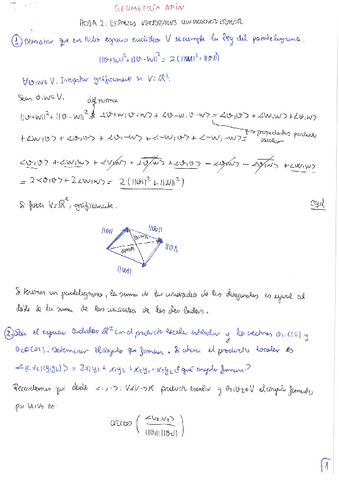 GEOMETRÍA AFÍN
HOJA 2: ESPACIOS VECTORIALES
① Demostrar que en todo espacio euclídeo V se cumple la ley del paralelogramo.
||v+w||² + ||v-w||² = 2(||v||² + ||w||²)
∀v,w∈V. Interpretar gráficamente si V=ℝ².
Sean v,w∈V.
def norma
||v+w||² + ||v-w||² = <v+w, v+w> + <v-w, v-w> = <v,v> + <v,w> +
propiedades producto escalar
+ <w,v> + <w,w> + <v,v> + <v,-w> + <-w,v> + <-w,-w> =
<v,v> + <v,w> + <v,w> + <w,w> + <v,v> - <v,w> - <v,w> + <w,w>
= 2<v,v> + 2<w,w> = 2(||v||² + ||w||²)
Si fuera V=ℝ², gráficamente.
cqd
||w||
||v||
||v||
||w||
Si tenemos un paralelogramo, la suma de los cuadrados de las diagonales es igual al
doble de la suma de los cuadrados de los dos lados.
② Sea el espacio euclídeo ℝ² con el producto escalar estándar y los vectores v₁=(1,0) y
v₂=(0,1). Determinar el ángulo que forman. Si ahora el producto escalar es
<(x₁,x₂),(y₁,y₂)> = 2x₁y₁ + x₁y₂ + x₂y₁ + x₂y₂ ¿qué ángulo forman?
Recordemos que dado <·,·>: V×V→ℝ producto escalar y v₁,v₂∈V el ángulo formado
por
arccos ( <v₁,v₂> / ||v₁|| ||v₂|| )
1